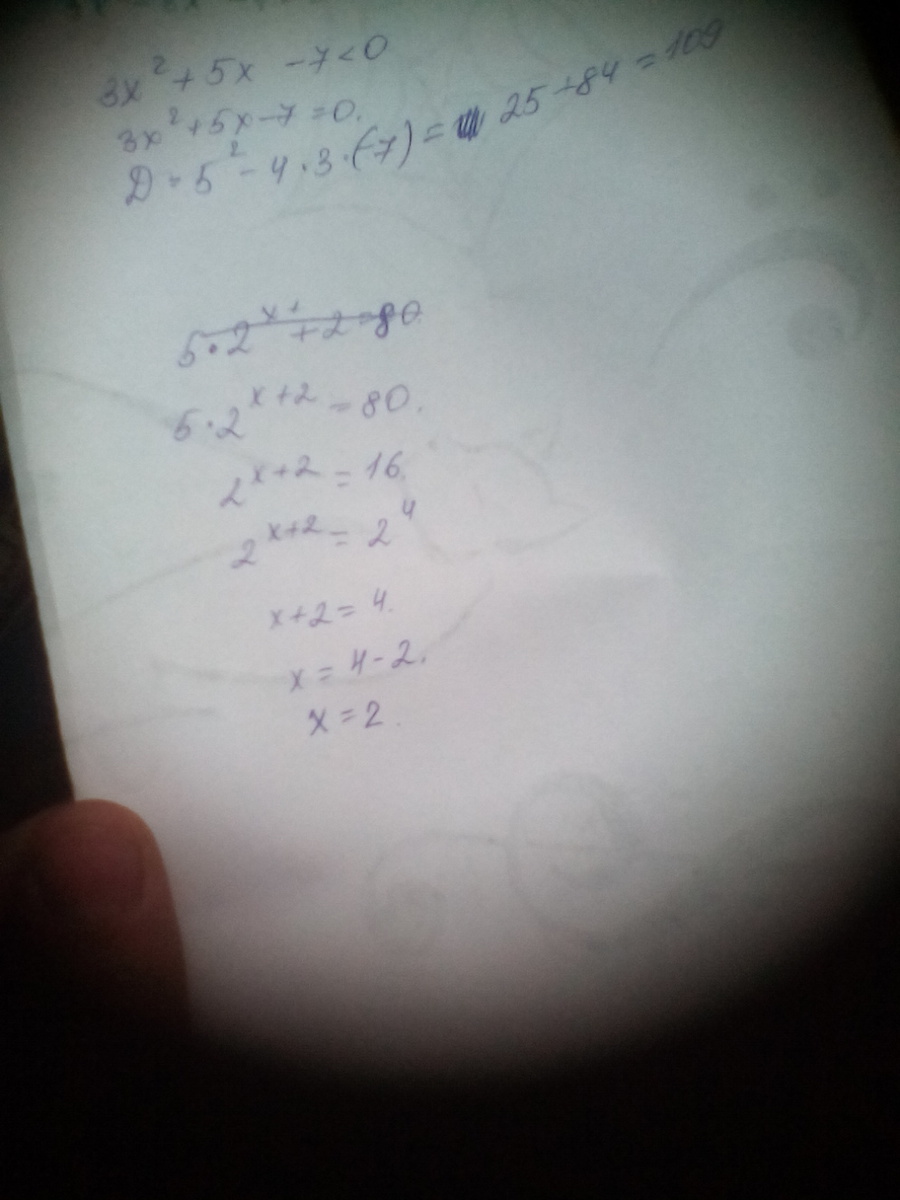 3x² + 5x - 7 < 0
3x² + 5x - 7 = 0.
D = 5² - 4 · 3 · (-7) = 25 + 84 = 109
5 · 2^x+ + 2 = 80
5 · 2^x+2 = 80.
2^x+2 = 16.
2^x+2 = 2^4
x + 2 = 4.
x = 4 - 2.
x = 2.